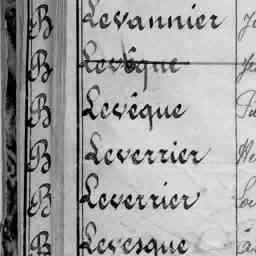 B Levannier
B Levêque
B Levêque
B Leverrier
B Leverrier
B Levesque